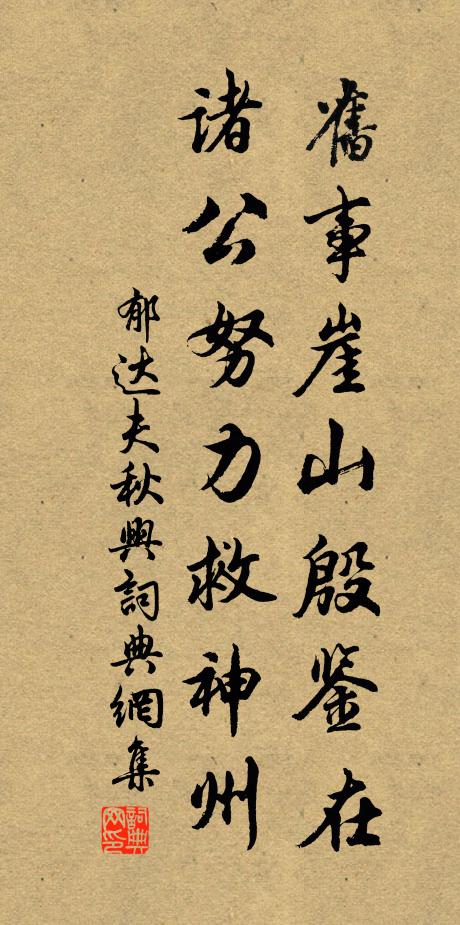 舊事崖山殷鉴在
诸公努力救神州
郁达夫秋興詞典網集
詞典网印